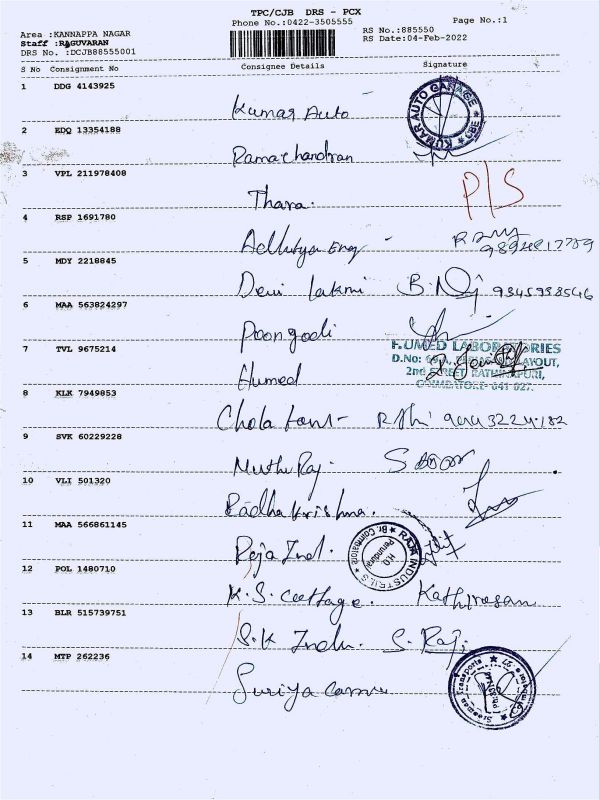 TPC/CJB DRS - PCX
Phone No.:0422-3505555 Page No.:1
Area :KANNAPPA NAGAR RS No.:885550
Staff :RAGUVARAN RS Date:04-Feb-2022
DRS No. :DCJB88555001
S No Consignment No Consignee Details Signature
1 DDG 4143925
Kumar Auto KUMAR AUTO GARAGE CBE
2 EDQ 13354188
Ramachandran
3 VPL 211978408
Thara. P/S
4 RSP 1691780
Adhitya Eng
5 MDY 2218845
Devi Lakmi 9345938546
6 MAA 563824297
Poongodi
7 TVL 9675214 HUMED LABORATORIES
D.No: LAYOUT,
2nd STREET RATHINAPURI,
COIMBATORE- 641 027.
Humed
8 KLK 7949853
Chola
9 SVK 60229228
Muthu Raj.
10 VLI 501320
Radha Krishna.
11 MAA 566861145
Raja Ind. RAJA INDUSTRILS H.O.
12 POL 1480710
K.S. Cottage. Kathiresan
13 BLR 515739751
S.K Indu. S. Raji
14 MTP 262236
Suriya Transports